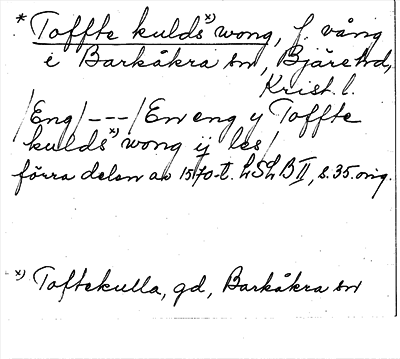 * Toffte kulds*) wong, f. vång
i Barkåkra sn, Bjäre hd,
Krist. l.
/Eng/---/En eng y Toffte
kulds*) wong ij les/
förra delen av 1570-t. LSLB II, s. 35. orig.
*) Toftekulla, gd, Barkåkra sn